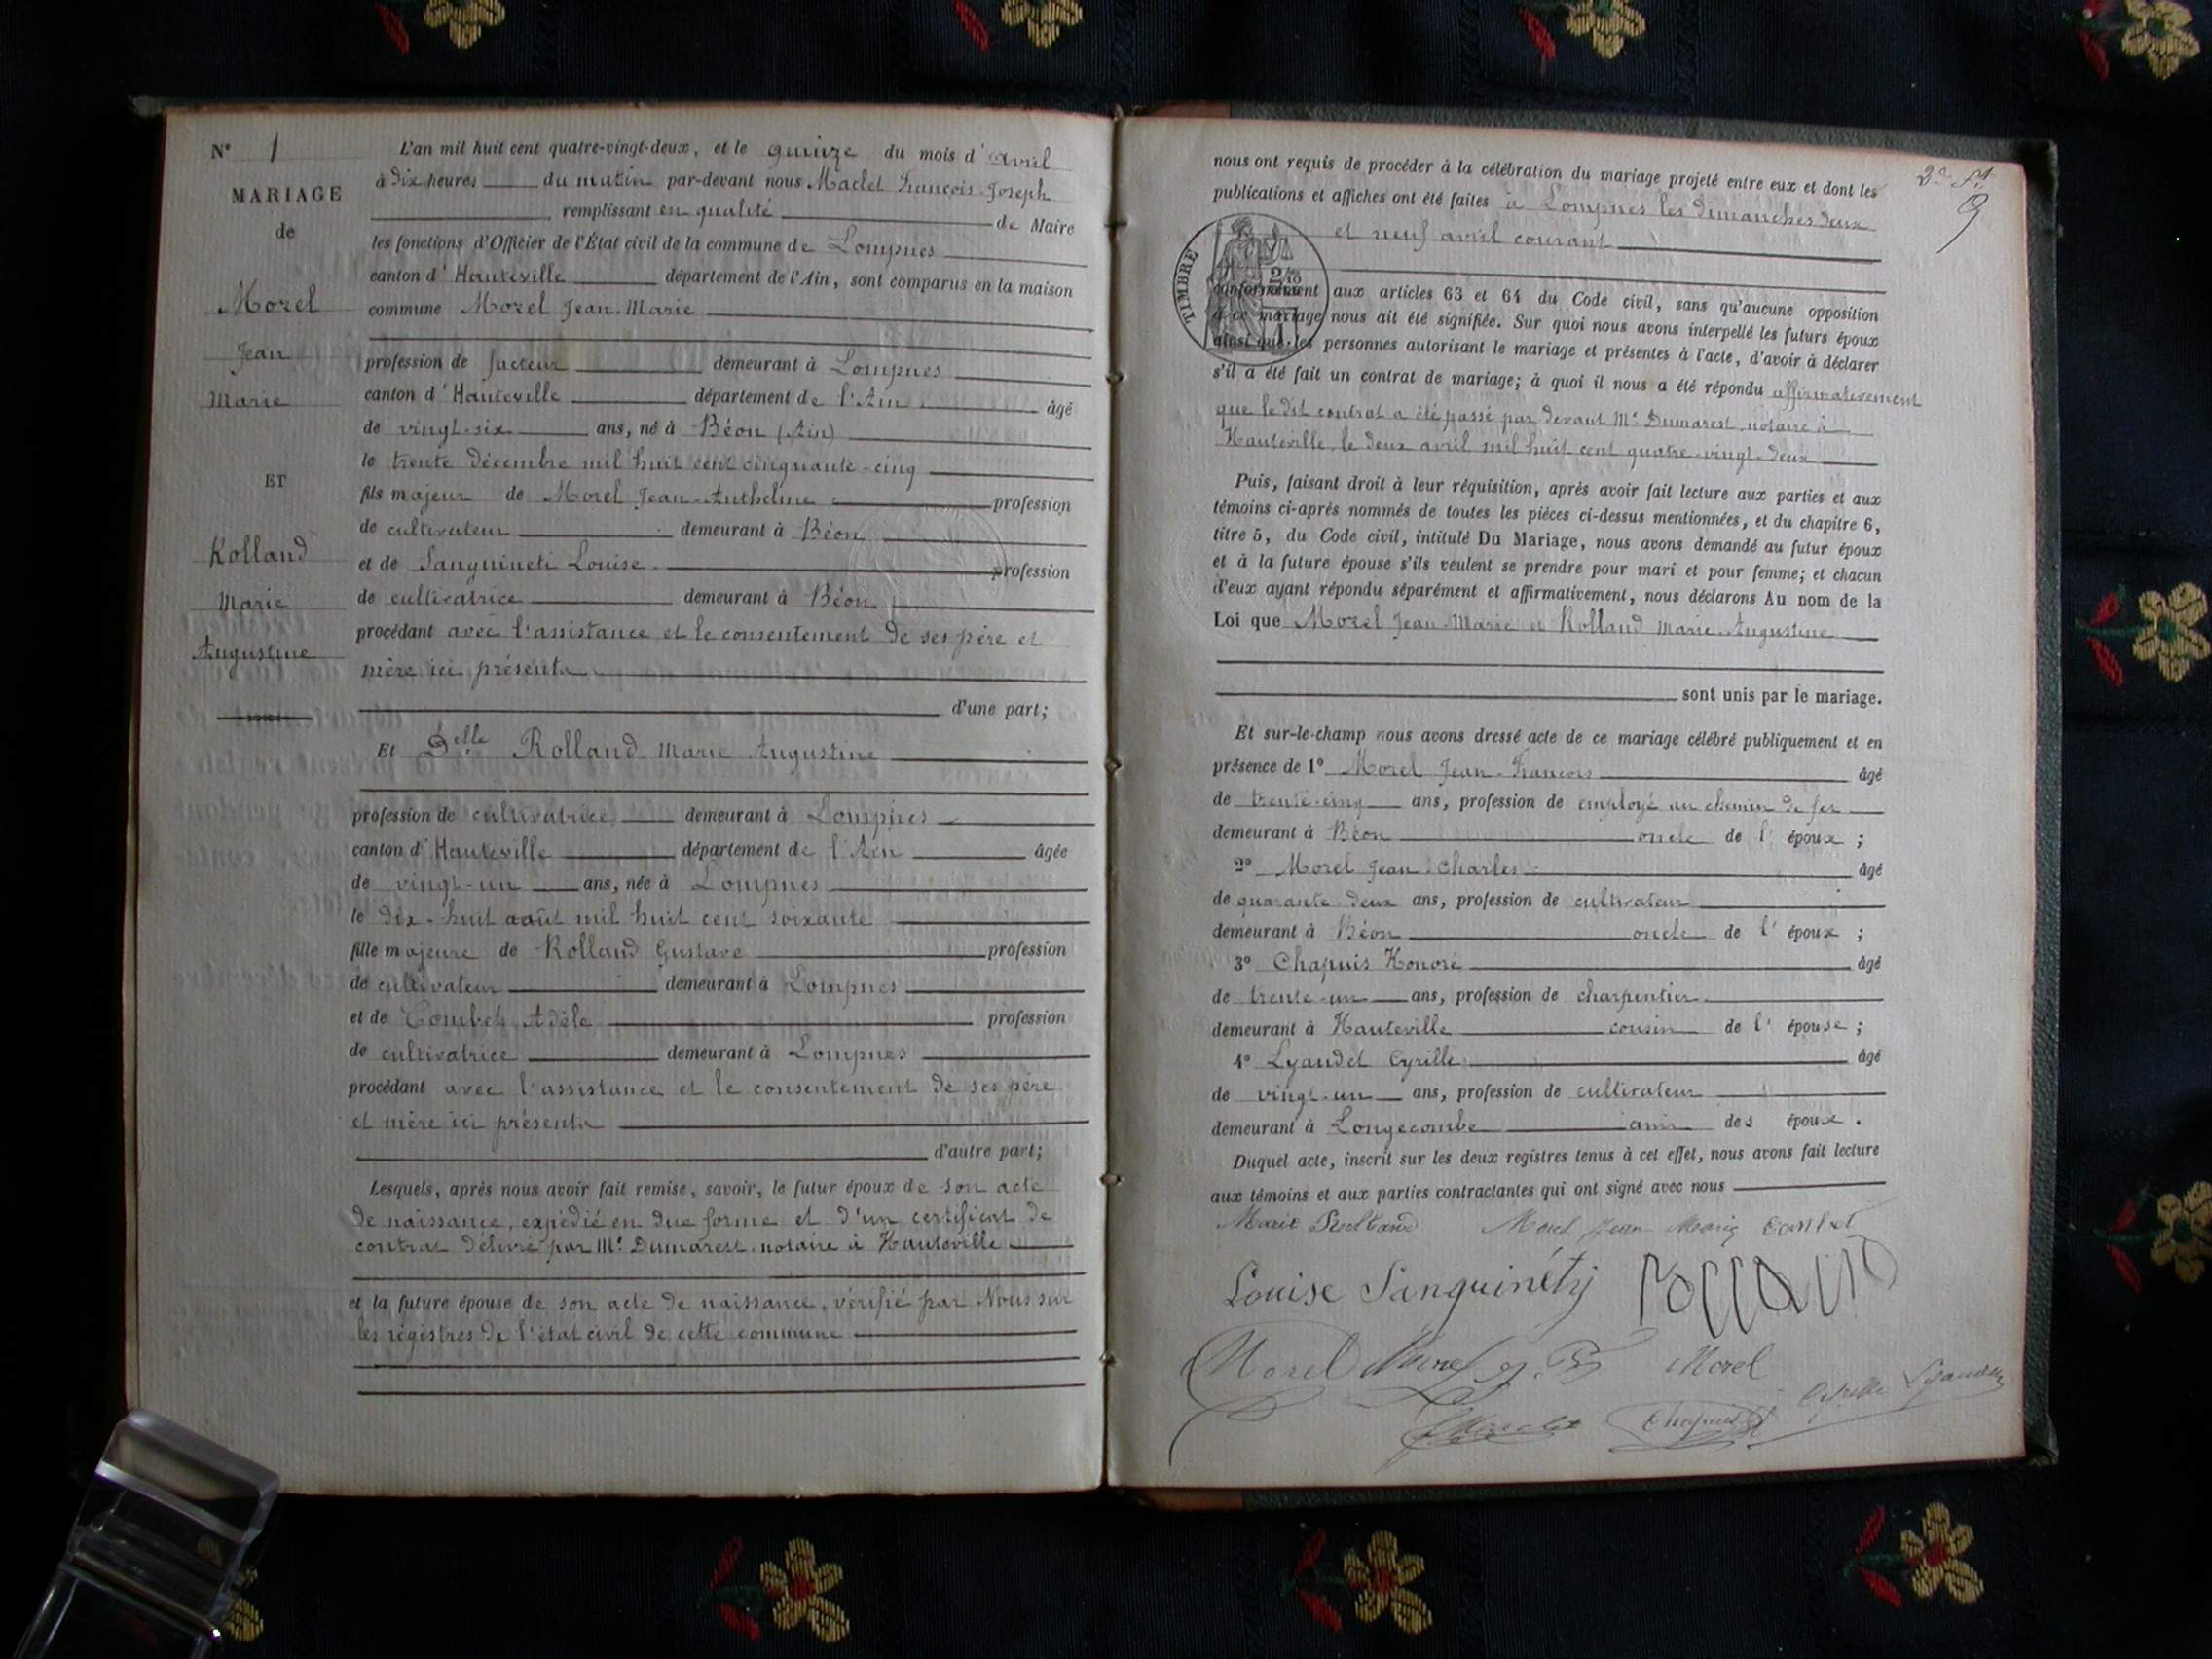 N° 1
MARIAGE
de
Morel
Jean
Marie
ET
Rolland
Marie
Augustine
L'an mil huit cent quatre-vingt-deux, et le quinze du mois d'avril
à dix heures du matin par-devant nous Maclet François-Joseph
remplissant en qualité de Maire
les fonctions d'Officier de l'État civil de la commune de Lompnes
canton d'Hauteville département de l'Ain, sont comparus en la maison
commune Morel Jean-Marie
profession de facteur demeurant à Lompnes
canton d'Hauteville département de l'Ain âgé
de vingt-six ans, né à Béon (Ain)
le trente décembre mil huit cent cinquante-cinq
fils majeur de Morel Jean-Anthelme profession
de cultivateur demeurant à Béon
et de Sanguineti Louise profession
de cultivatrice demeurant à Béon
procédant avec l'assistance et le consentement de ses père et
mère ici présents
d'une part;
Et Delle Rolland Marie Augustine
profession de cultivatrice demeurant à Lompnes
canton d'Hauteville département de l'Ain âgée
de vingt-un ans, née à Lompnes
le dix-huit août mil huit cent soixante
fille majeure de Rolland Gustave profession
de cultivateur demeurant à Lompnes
et de Combet Adèle profession
de cultivatrice demeurant à Lompnes
procédant avec l'assistance et le consentement de ses père
et mère ici présents
d'autre part;
Lesquels, après nous avoir fait remise, savoir, le futur époux de son acte
de naissance, expédié en due forme et d'un certificat de
contrat délivré par Me Dumarest, notaire à Hauteville
et la future épouse de son acte de naissance, vérifié par Nous sur
les régistres de l'état civil de cette commune
9
nous ont requis de procéder à la célébration du mariage projeté entre eux et dont les
publications et affiches ont été faites à Lompnes les dimanches deux
et neuf avril courant
TIMBRE
2/10
conformément aux articles 63 et 64 du Code civil, sans qu'aucune opposition
à ce mariage nous ait été signifiée. Sur quoi nous avons interpellé les futurs époux
ainsi que les personnes autorisant le mariage et présentes à l'acte, d'avoir à déclarer
s'il a été fait un contrat de mariage; à quoi il nous a été répondu affirmativement
que le dit contrat a été passé par devant Me Dumarest, notaire à
Hauteville, le deux avril mil huit cent quatre-vingt-deux
Puis, faisant droit à leur réquisition, après avoir fait lecture aux parties et aux
témoins ci-après nommés de toutes les pièces ci-dessus mentionnées, et du chapitre 6,
titre 5, du Code civil, intitulé Du Mariage, nous avons demandé au futur époux
et à la future épouse s'ils veulent se prendre pour mari et pour femme; et chacun
d'eux ayant répondu séparément et affirmativement, nous déclarons Au nom de la
Loi que Morel Jean-Marie et Rolland Marie-Augustine
sont unis par le mariage.
Et sur-le-champ nous avons dressé acte de ce mariage célébré publiquement et en
présence de 1° Morel Jean-François âgé
de trente-cinq ans, profession de employé au chemin de fer
demeurant à Béon oncle de l'époux ;
2° Morel Jean Charles âgé
de quarante-deux ans, profession de cultivateur
demeurant à Béon oncle de l'époux ;
3° Chapuis Honoré âgé
de trente-un ans, profession de charpentier
demeurant à Hauteville cousin de l'épouse ;
4° Lyaudet Cyrille âgé
de vingt-un ans, profession de cultivateur
demeurant à Longecombe ami des époux .
Duquel acte, inscrit sur les deux registres tenus à cet effet, nous avons fait lecture
aux témoins et aux parties contractantes qui ont signé avec nous
Marie Morel Jean Marie Combet
Louise Sanguinétij Rolland
Morel Morel Morel
Maclet Chapuis Cyrille Lyaudet